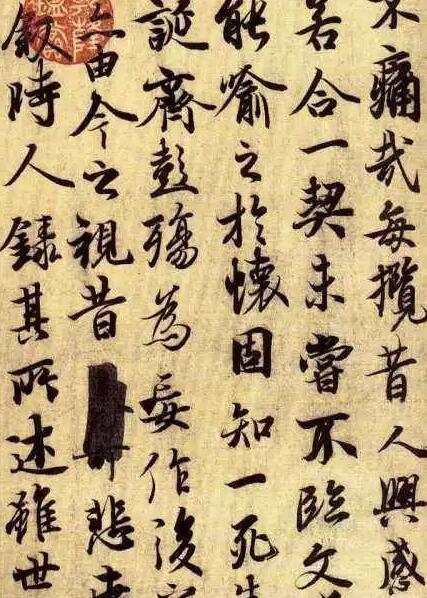 不痛哉每攬昔人興感
若合一契未嘗不臨文
能喻之於懷固知一死生
誕齊彭殤為妄作後
亦由今之視昔悲夫
叙時人錄其所述雖世